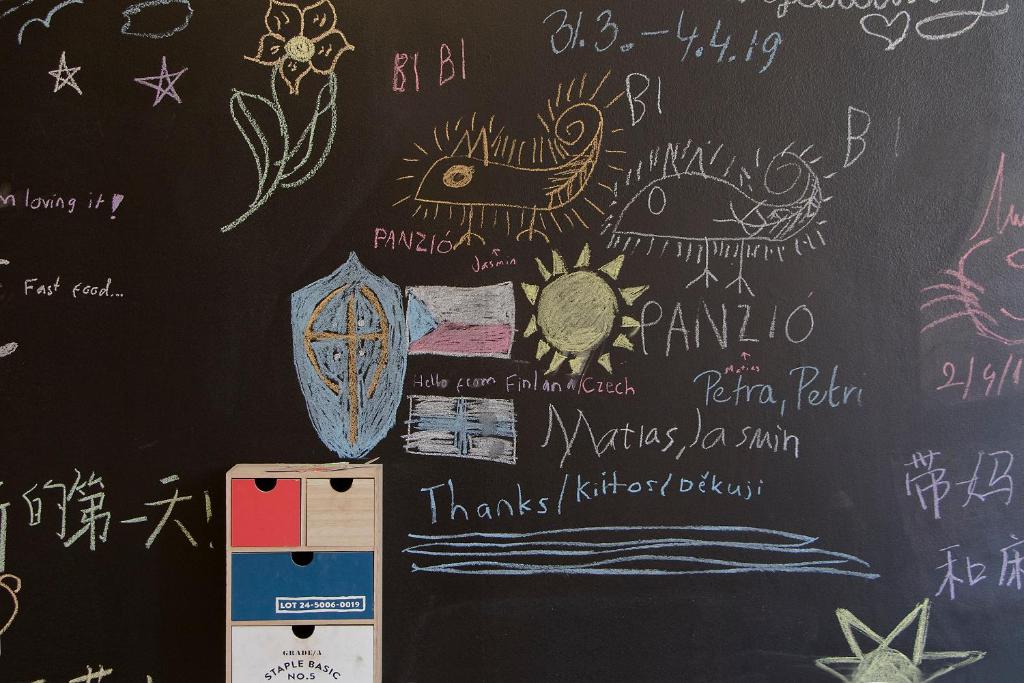 31.3.-4.4.19
BI BI
BI
BI
m loving it!
PANZIÓ
Jasmin
Fast food...
PANZIÓ
Matias
Hello from Finland/Czech
Petra, Petri
Matias, Jasmin
Thanks/Kiitos/Děkuji
的第一天!
带妈
和
LOT 24-5006-0019
GRADE/A
STAPLE BASIC
NO.5